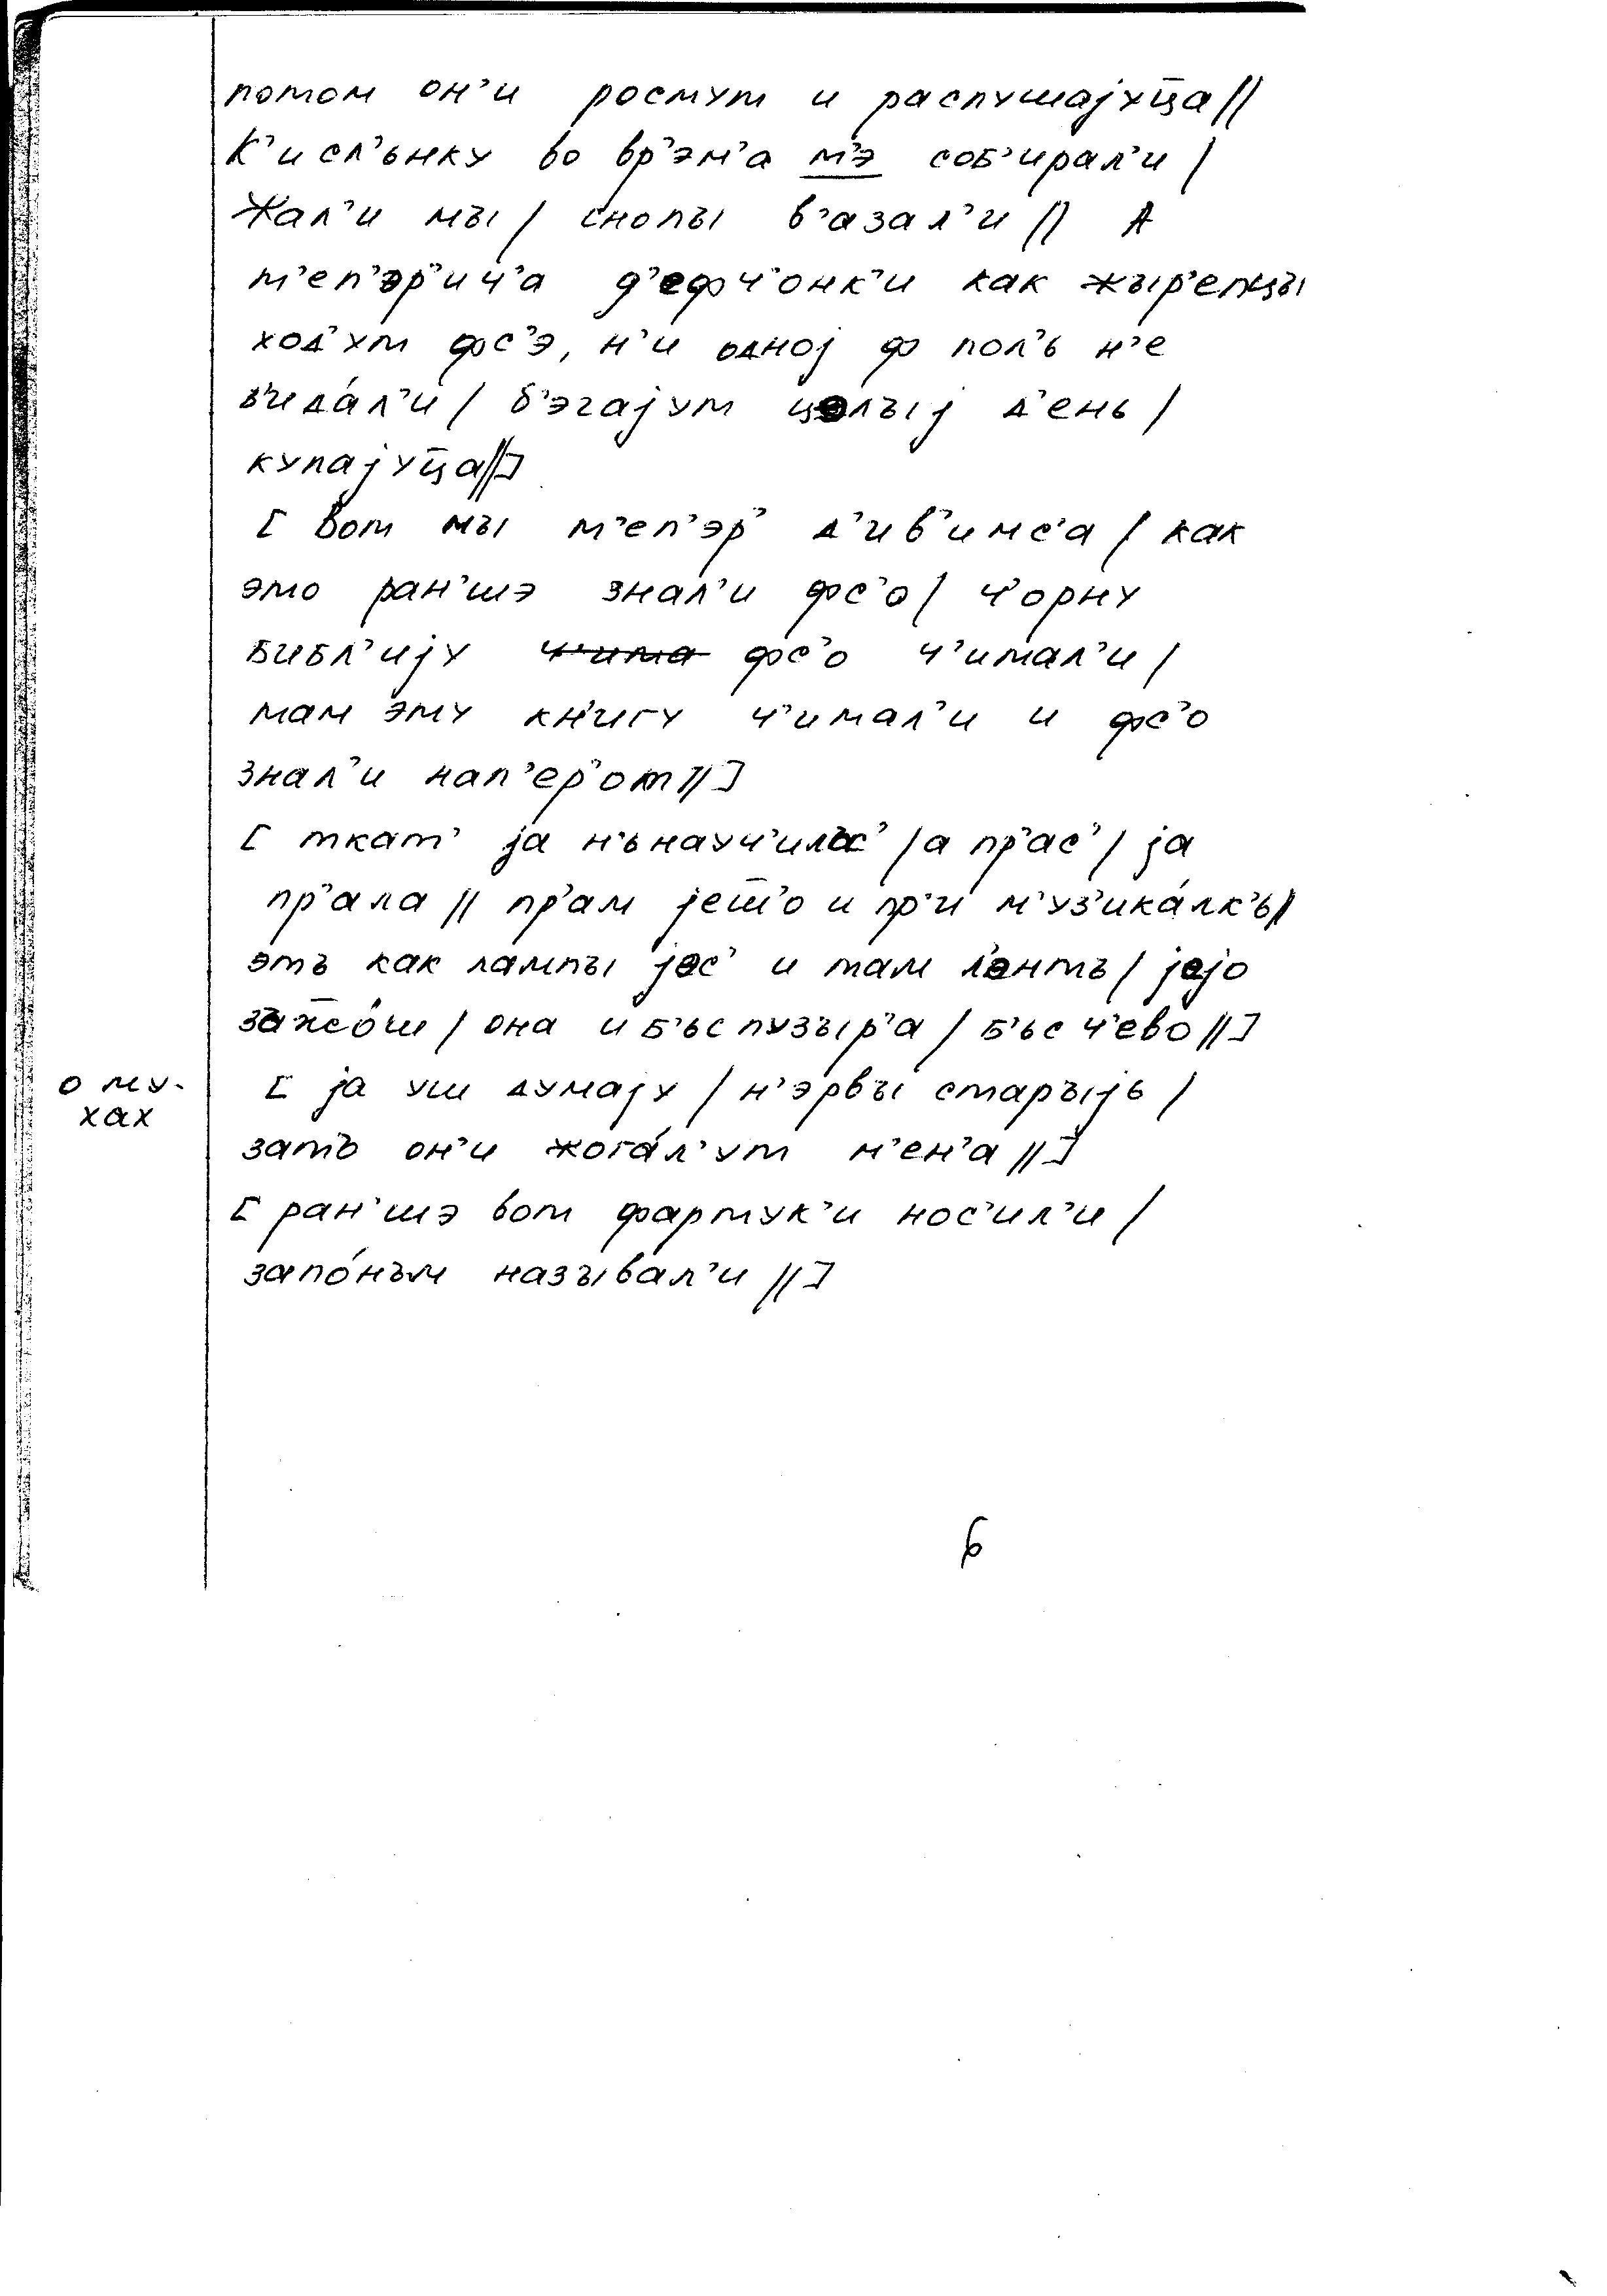 потом он’и ростут и распушајуц̄а //
К’исл’ънку во вр’эм’а т’э соб’ирал’и /
Жал’и мы / снопы в’азал’и // А
т’еп’эр’ич’а д’ефч’онк’и как жыр’епцы
ход’ут фс’э, н’и одној ф пол’ь н’е
в’ида́л’и / б’эгајут целыј д’ень /
купајуц̄а //]
[ Вот мы т’еп’эр’ д’ив’имс’а / как
это ран’шэ знал’и фс’о / ч’орну
Библ’ију фс’о ч’итал’и /
там эту кн’игу ч’итал’и и фс’о
знал’и нап’ер’от //]
[ ткат’ ја н’ънауч’илас’ / а пр’ас’ / ја
пр’ала // пр’ам јеш̄’о и пр’и м’уз’ика́лк’ь //
этъ как лампы јес’ и там л’ентъ / јејо
заж̄о́ш / она и б’ьс пузыр’а / б’ьс ч’ево //]
о му-
хах
[ ја уш думају / н’эрвы старыјь /
затъ он’и жога́л’ут м’ен’а //]
[ ран’шэ вот фартук’и нос’ил’и /
запо́нъм называл’и //]
6